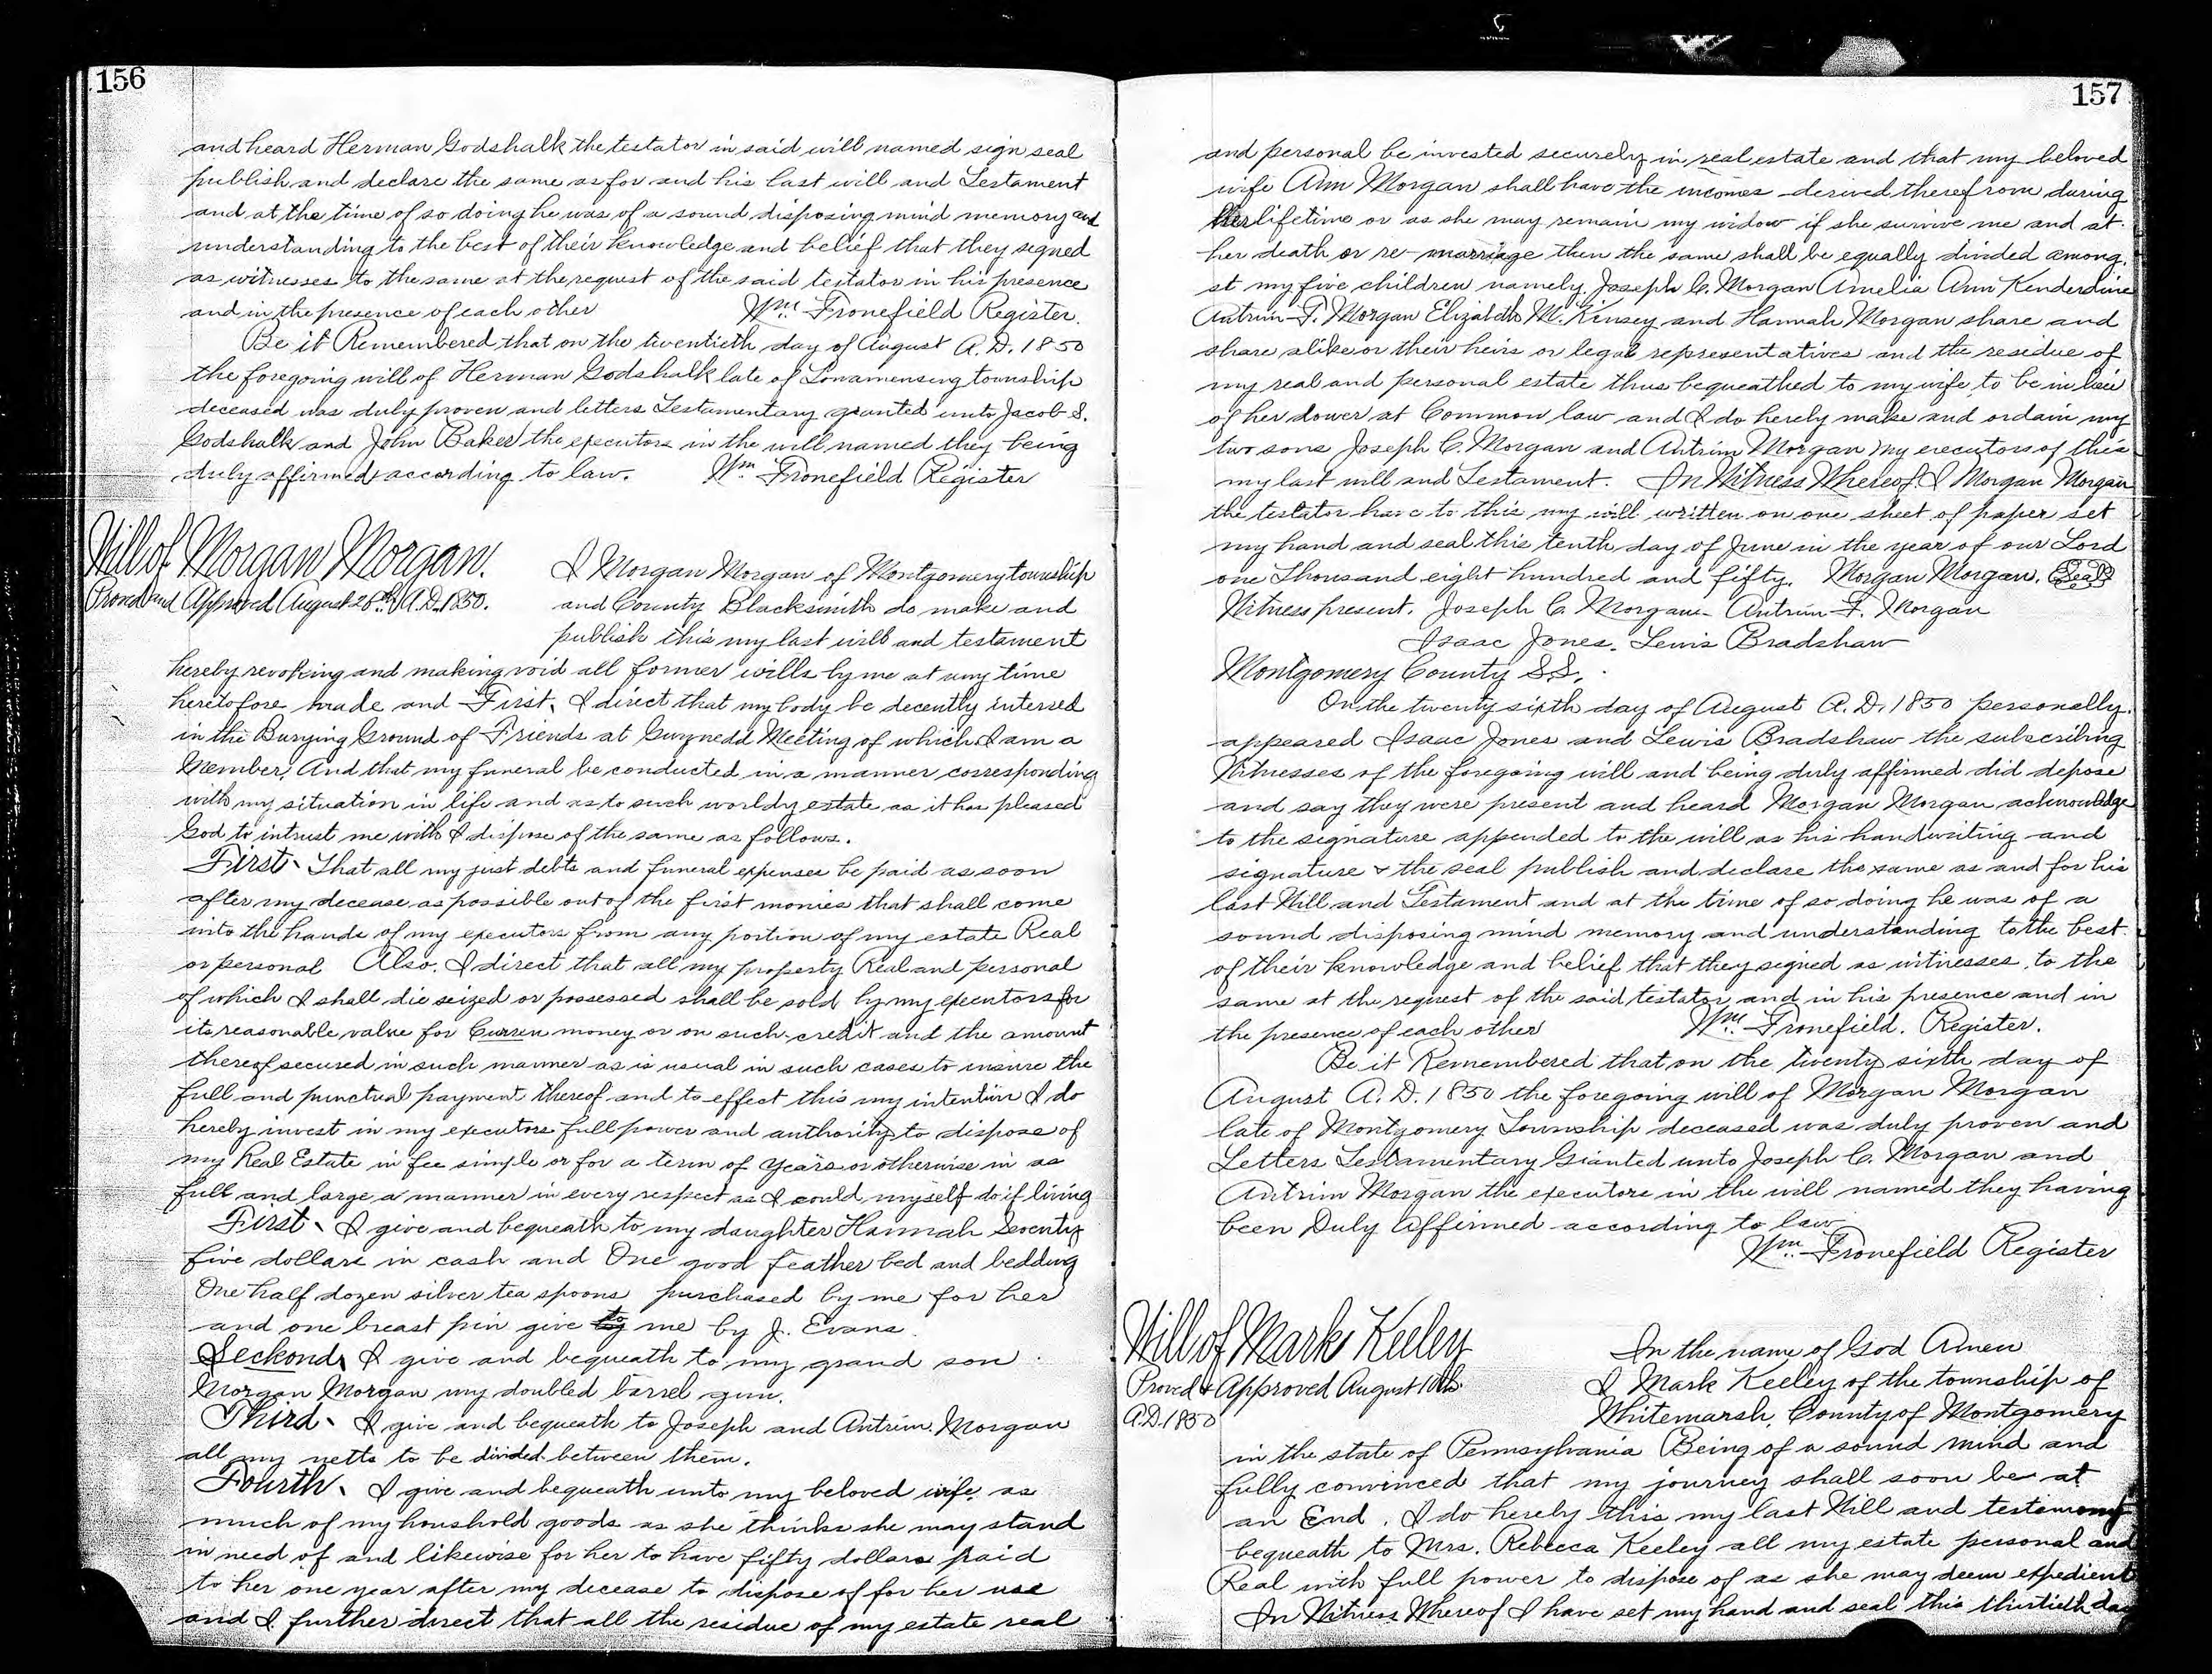 156
and heard Herman Godshalk the testator in said will named sign seal
publish and declare the same as for and his last will and Testament
and at the time of so doing he was of a sound disposing mind memory and
understanding to the best of their knowledge and belief that they signed
as witnesses to the same at the request of the said testator in his presence
and in the presence of each other Wm. Fronefield Register.
Be it Remembered that on the twentieth day of August A.D. 1850
the foregoing will of Herman Godshalk late of Towamensing township
deceased was duly proven and letters Testamentary granted unto Jacob S.
Godshalk and John Baker the executors in the will named they being
duly affirmed according to law. Wm. Fronefield Register
Will of Morgan Morgan.
Proved and Approved August 26th A.D. 1850.
I Morgan Morgan of Montgomery township
and County Blacksmith do make and
publish this my last will and testament
hereby revoking and making void all former wills by me at any time
heretofore made and First, I direct that my body be decently interred
in the Burying Ground of Friends at Gwynedd Meeting of which I am a
Member, And that my funeral be conducted in a manner corresponding
with my situation in life and as to such worldy estate as it has pleased
God to intrust me with I dispose of the same as follows.
First, That all my just debts and funeral expenses be paid as soon
after my decease as possible out of the first monies that shall come
into the hands of my executors from any portion of my estate Real
or personal Also. I direct that all my property Real and personal
of which I shall die seized or possessed shall be sold by my executors for
its reasonable value for Curren money or on such credit and the amount
thereof secured in such manner as is usual in such cases to insure the
full and punctual payment thereof and to effect this my intention I do
hereby invest in my executors full power and authority to dispose of
my Real Estate in fee simple or for a term of years or otherwise in as
full and large a manner in every respect as I could myself do if living
First, I give and bequeath to my daughter Hannah Seventy
five dollars in cash and One good feather bed and bedding
One half dozen silver tea spoons purchased by me for her
and one breast pin give to me by J. Evans.
Seckond, I give and bequeath to my grand son
Morgan Morgan my doubled barrel gun.
Third, I give and bequeath to Joseph and Antrim. Morgan
all my netts to be divided between them.
Fourth, I give and bequeath unto my beloved wife as
much of my houshold goods as she thinks she may stand
in need of and likewise for her to have fifty dollars paid
to her one year after my decease to dispose of for her use
and I further direct that all the residue of my estate real
157
and personal be invested securely in real estate and that my beloved
wife Ann Morgan shall have the incomes derived therefrom during
her lifetime or as she may remain my widow if she survive me and at
her death or re-marriage then the same shall be equally divided among
st my five children namely. Joseph C. Morgan Amelia Ann Kenderdine
Antrim F. Morgan Elizabeth M. Kinsey and Hannah Morgan share and
share alike or their heirs or legal representatives and the residue of
my real and personal estate thus bequeathed to my wife to be in lieu
of her dower at Common law and I do hereby make and ordain my
two sons Joseph C. Morgan and Antrim Morgan my executors of this
my last will and Testament. In Witness Whereof I Morgan Morgan
the testator have to this my will written on one sheet of paper set
my hand and seal this tenth day of June in the year of our Lord
one Thousand eight hundred and fifty. Morgan Morgan. Seal
Witness present. Joseph C. Morgan - Antrim F. Morgan
Isaac Jones. Lewis Bradshaw
Montgomery County S.S.
On the twenty sixth day of August A.D. 1850 personally
appeared Isaac Jones and Lewis Bradshaw the subscribing
Witnesses of the foregoing will and being duly affirmed did depose
and say they were present and heard Morgan Morgan acknowledge
to the signature appended to the will as his handwriting and
signature & the seal publish and declare the same as and for his
last Will and Testament and at the time of so doing he was of a
sound disposing mind memory and understanding to the best
of their knowledge and belief that they signed as witnesses to the
same at the request of the said testator and in his presence and in
the presence of each other Wm. Fronefield. Register.
Be it Remembered that on the twenty sixth day of
August A.D. 1850 the foregoing will of Morgan Morgan
late of Montgomery Township deceased was duly proven and
Letters Testamentary Granted unto Joseph C. Morgan and
Antrim Morgan the executors in the will named they having
been Duly Affirmed according to law
Wm. Fronefield Register
Will of Mark Keeley
Proved & Approved August 10th
A.D. 1850
In the name of God Amen
I Mark Keeley of the township of
Whitemarsh, County of Montgomery
in the state of Pennsylvania Being of a sound mind and
fully convinced that my journey shall soon be at
an End. I do hereby this my last Will and testament
bequeath to Mrs. Rebecca Keeley all my estate personal and
Real with full power to dispose of as she may deem expedient
In Witness Whereof I have set my hand and seal this thirtieth day